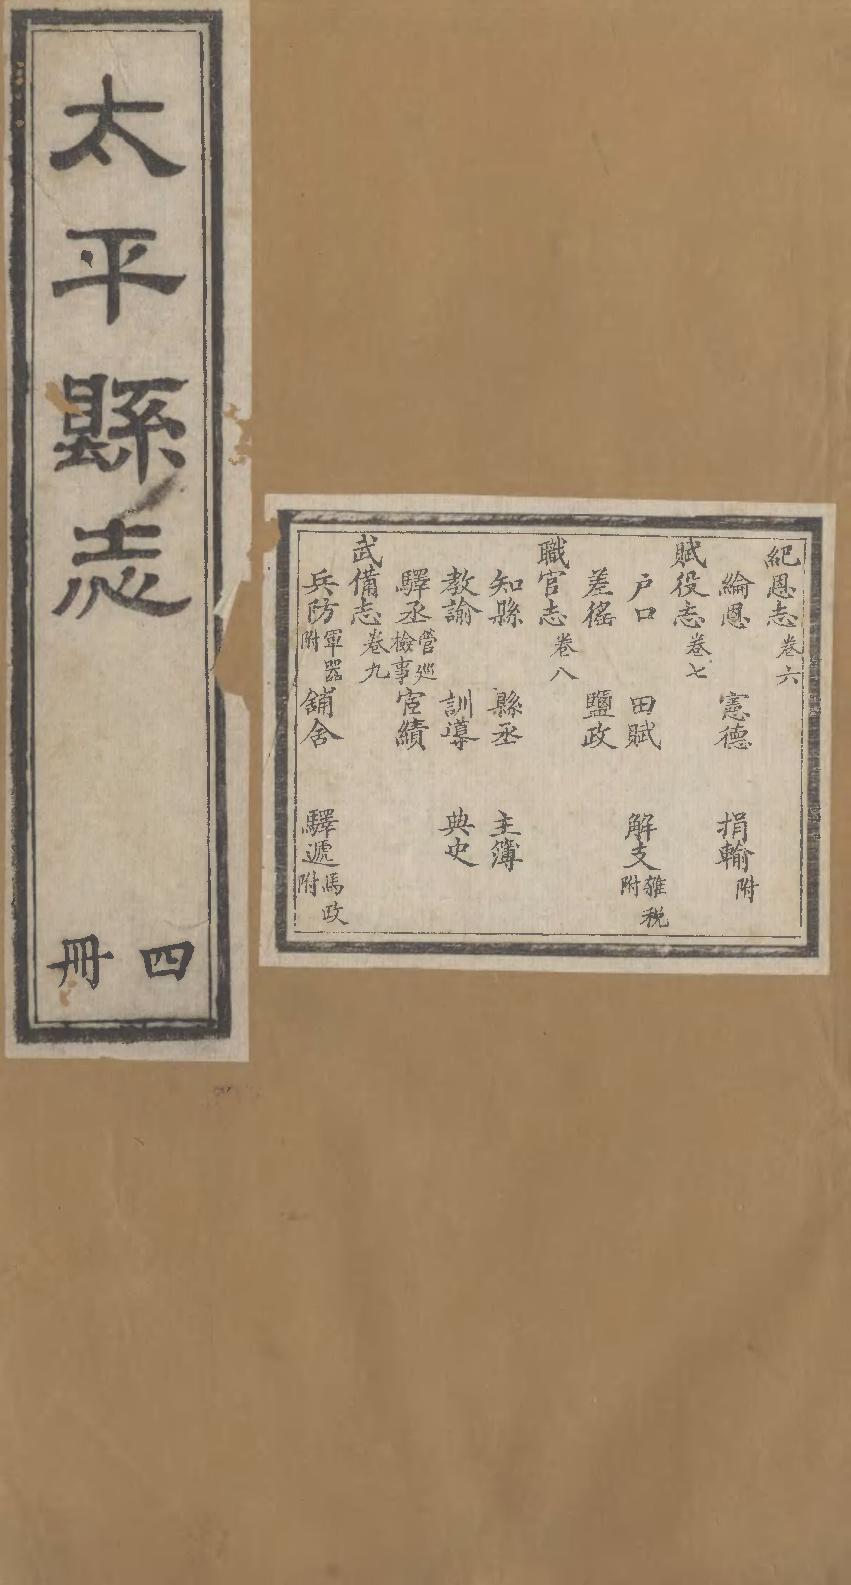 太平縣志
四冊
紀恩志卷六
綸恩 憲德 捐輸附
賦役志卷七
戶口 田賦 解支雜稅附
差徭 鹽政
職官志卷八
知縣 縣丞 主簿
教諭 訓導 典史
驛丞管巡檢事 宦績
武備志卷九
兵防軍器附 舖舍 驛遞馬政附